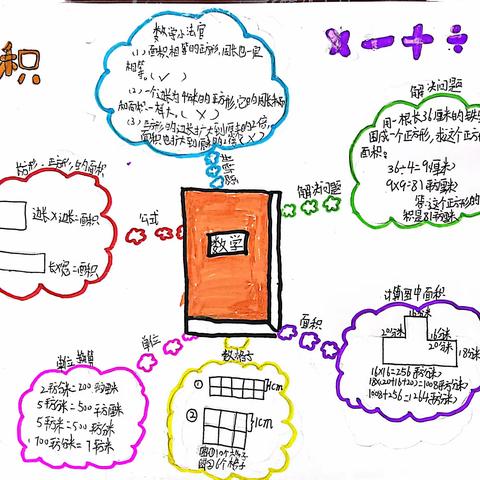 积
× − + ÷
数学小法官
(1)面积相等的正方形,周长也一定
相等。(✓)
(2)一个边长为4分米的正方形,它的周长
和面积一样大。(×)
(3)正方形的边长扩大到原来的2倍,
面积也扩大到原来的2倍(×)
解决问题
用一根长36厘米的铁丝
围成一个正方形,求这个正方形
面积。
36÷4=9(厘米)
9×9=81(平方厘米)
答:这个正方形的
积是81平方厘米
解决问题
长方形、正方形的面积
边长×边长=面积
长×宽=面积
公式
数学
单位
面积
数格子
计算图中面积
16分米
20分米
16分米
20分米
18分米
16×16=256(平方分米)
18×(20+16+20)=1008(平方分米)
1008+256=1264(平方分米)
单位换算
2平方分米=200平方厘米
5平方分米=500平方厘米
5平方米=500平方分米
700平方分米=7平方米
①
1cm
②
1cm
图①10个格子
图②6个格子